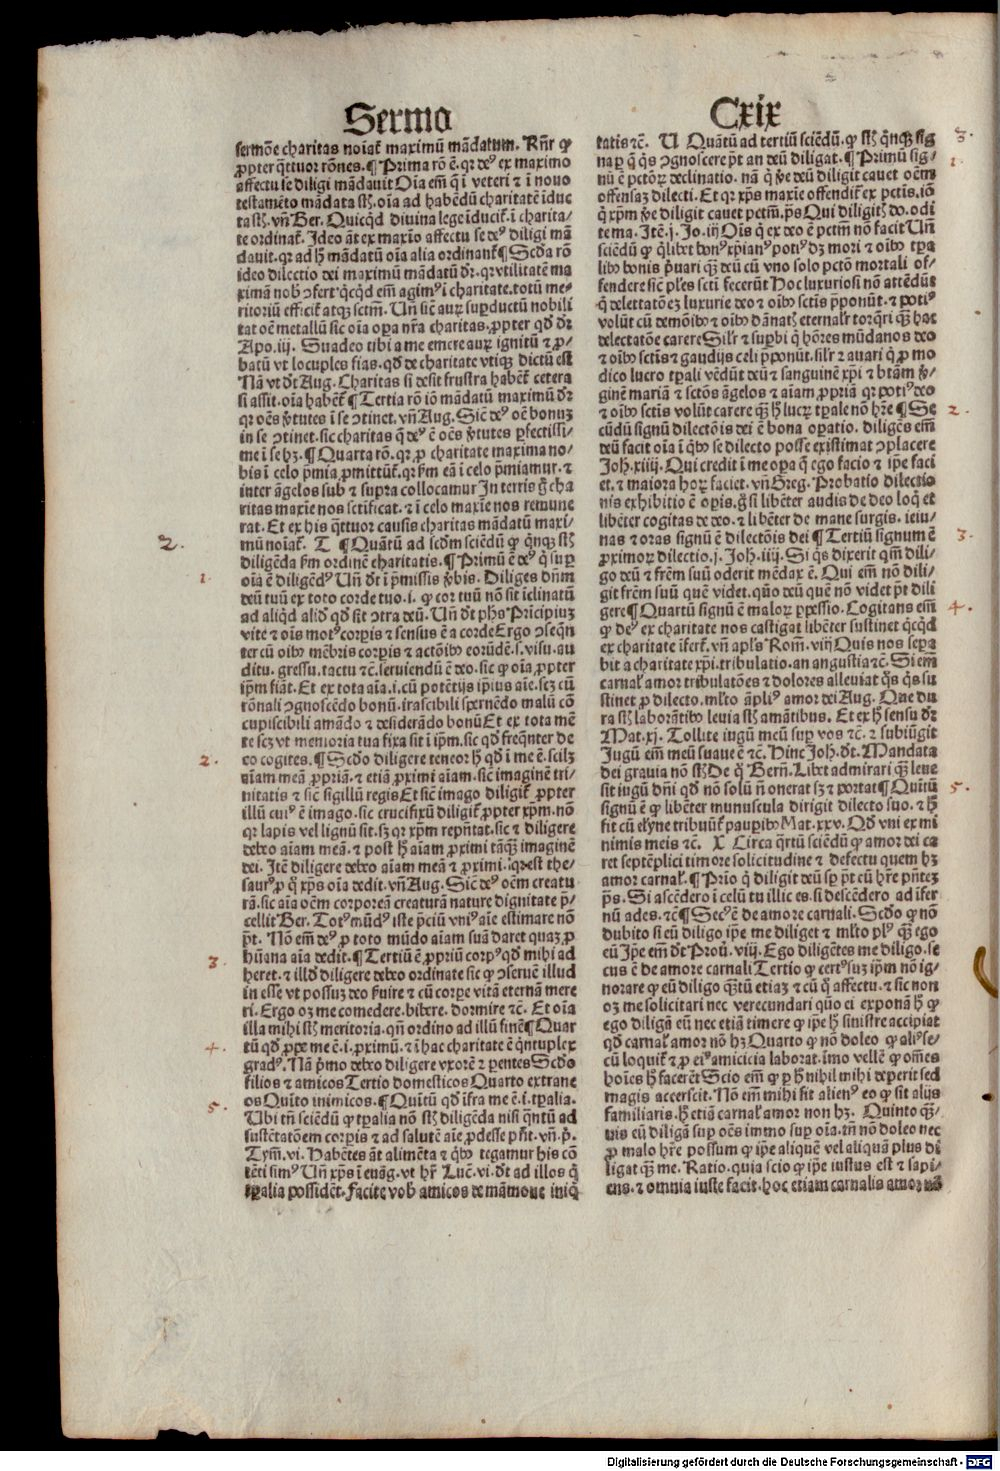 Sermo
Cxix
sermõe charitas noĩat᷑ maximũ mãdatum. Rñr ꝙ
ꝓpter q̈ttuor rõnes. ¶ Prima rõ ẽ. qꝛ deꝰ ex maximo
affectu se diligi mãdauit Oĩa em̃ q̃ ĩ veteri ⁊ ĩ nouo
testamẽto mãdata st̃. oĩa ad habẽdũ charitatẽ iduc
ta st̃. vñ Ber. Quicq̇d diuina lege iducit᷑. ĩ charita/
te ordinat᷑. Ideo ãt ex maxĩo affectu se deꝰ diligi mã
dauit. qꝛ ad h̃ mãdatũ oĩa alia ordinant᷑ ¶ Scđa rõ
ideo dilectio dei maximũ mãdatũ dꝛ̃. qꝛ vtilitatẽ ma
ximã nob̃ ꝯfert qͥcqͥd em̃ agimꝰ ĩ charitate. totũ me/
ritoriũ efficit᷑ atqꝫ sctm̃. Un̄ sic̃ auꝝ suꝑductũ nobili
tat oẽ metallũ sic oĩa oꝑa nr̃a charitas. ꝓpter qđ dꝛ̃
Apo. iij. Suadeo tibi a me emere auꝝ ignitũ ⁊ ꝓ/
batũ vt locuples fias. qđ de charitate vtiqꝫ dictũ est
Nã vt đt Aug. Charitas si desit frustra habẽt᷑ cetera
si assit. oĩa habẽt᷑ ¶ Tertia rõ iõ mãdatũ maximũ dꝛ̃
qꝛ oẽs ṽtutes ĩ se ꝯtinet. vñ Aug. Sic̃ deꝰ oẽ bonuꝫ
in se ꝯtinet. sic charitas q̃ deꝰ ẽ oẽs ṽtutes ꝑfectissi/
me ĩ se hꝫ. ¶ Quarta rõ. qꝛ ꝓ charitate maxima no/
bis ĩ celo p̃mia ꝓmittũt᷑. qꝛ ẜm eã ĩ celo p̃miamur. ⁊
inter ãgelos sub ⁊ supra collocamur In terris g̃ cha
ritas maxĩe nos sctificat. ⁊ ĩ celo maxĩe nos remune
rat. Et ex his q̈ttuor causis charitas mãdatũ maxi/
mũ noĩat᷑. T ¶ Quãtũ ad scđm sciẽdũ ꝙ qͥnqꝫ st̃
diligẽda ẜm ordinẽ charitatis. ¶ Primũ ẽ deꝰ q̃ suꝑ
oĩa ẽ diligẽdꝰ Un̄ đt ĩ p̃missis ṽbis. Diliges dñm
deũ tuũ ex toto corde tuo. i. ꝙ cor tuũ nõ sit iclinatũ
ad aliqͥd aliđ qđ sit ꝯtra deũ. Un̄ đt phs̃ Pricipiuꝫ
vite ⁊ oĩs motꝰ corꝑis ⁊ sensus ẽ a corde Ergo ꝯseq̃n
ter cũ oĩbꝰ mẽbris corꝑis ⁊ actõĩbꝰ eorũdẽ. s. visu. au
ditu. gressu. tactu ⁊c̃. seruiendũ ẽ deo. sic ꝙ oĩa ꝓpter
ip̃m fiãt. Et ex tota aĩa. i. cũ potẽtijs ip̃ius aĩe. scꝫ cũ
rõnali ꝯgnoscẽdo bonũ. irascibili spernẽdo malũ cõ
cupiscibili amãdo ⁊ desiderãdo bonũ Et ex tota mẽ
te scꝫ vt memoria tua fixa sit ĩ ip̃m. sic qđ freq̃nter de
eo cogites. ¶ Scđo diligere teneor h̃ qđ ĩ me ẽ. scilꝫ
aĩam meã ꝓpriã. ⁊ etiã ꝓximi aĩam. sic̃ imaginẽ tri/
nitatis ⁊ sic̃ sigillũ regis Et sic̃ imago diligit᷑ ꝓpter
illũ cuiꝰ ẽ imago. sic crucifixũ diligit᷑ ꝓpter xp̃m. nõ
qꝛ lapis vel lignũ sit. sꝫ qꝛ xp̃m rep̃ñtat. sic ⁊ diligere
debeo aĩam meã. ⁊ post h̃ aĩam ꝓximi tãq̃ꝫ imaginẽ
dei. Itẽ diligere debeo aĩam meã ⁊ ꝓximi. qꝛ est the/
saurꝰ ꝓ q̃ xp̃s oĩa dedit. vñ Aug. Sic̃ deꝰ oẽm creatu
rã. sic aĩa oẽm corporeã creaturã nature dignitate p̃/
cellit Ber. Totꝰ mũdꝰ iste p̃ciũ vniꝰ aĩe estimare nõ
p̃t. Nõ em̃ deꝰ ꝓ toto mũdo aĩam suã daret quaꝫ ꝓ
hũana aĩa dedit. ¶ Tertiũ ẽ ꝓpriũ corpꝰ qđ mihi ad
heret. ⁊ illđ diligere debeo ordinate sic ꝙ ꝯseruẽ illud
in esse vt possuꝫ deo ẜuire ⁊ cũ corꝑe vitã eternã mere
ri. Ergo oꝫ me comedere. bibere. dormire ⁊c̃. Et oĩa
illa mihi st̃ meritoria. qñ ordino ad illũ finẽ ¶ Quar
tũ qđ ꝓpe me ẽ. i. ꝓximũ. ⁊ ĩ hac charitate ẽ qͥntuplex
gradꝰ. Nã p̃mo debeo diligere vxorẽ ⁊ ꝑentes Scđo
filios ⁊ amicos Tertio domesticos Quarto extrane
os Quĩto inimicos. ¶ Quĩtũ qđ ĩfra me ẽ. i. tꝑalia.
Ubi tñ sciẽdũ ꝙ tꝑalia nõ st̃ diligẽda nisi q̈ntũ ad
sustẽtatõem corꝑis ⁊ ad salutẽ aĩe ꝓdesse pñt. vñ. p̃.
Tym̃. vi. Habẽtes ãt alimẽta ⁊ qͥbꝰ tegamur his cõ
tẽti simꝰ Un̄ xp̃s ĩ euãg. vt hr̃ Luc̃. vi. đt ad illos q̃
tꝑalia possidẽt. Facite vob̃ amicos de mãmone iniq̃
tatis ⁊c̃. U Quãtũ ad tertiũ sciẽdũ. ꝙ st̃ qͥnqꝫ sig
na ꝑ q̃ q̃s ꝯgnoscere p̃t an deũ diligat. ¶ Primũ sig/
nũ ẽ pctõꝝ declinatio. nã q̃ ṽe deũ diligit cauet oẽm
offensaꝫ dilecti. Et qꝛ xp̃s maxĩe offendit᷑ ex pctĩs. iõ
q̃ xp̃m ṽe diligit cauet pctm̃. p̃s Qui diligitꝭ do. odi
te ma. Itẽ. j. Jo. iij Oĩs q̃ ex deo ẽ pctm̃ nõ facit Un̄
sciẽdũ ꝙ q̃libet bonꝰ xp̃ianꝰ potiꝰ dꝫ mori ⁊ oĩbꝰ tꝑa
libꝰ bonis p̃uari q̃ꝫ deũ cũ vno solo pctõ mortali of/
fendere sic̃ ꝑles sctĩ fecerũt Hoc luxuriosi nõ attẽdũt
q̃ delettatõeꝫ luxurie deo ⁊ oĩbꝰ sctĩs p̃ponũt. ⁊ potiꝰ
volũt cũ demõĩbꝰ ⁊ oĩbꝰ dãnatꝭ eternalr̃ torq̃ri q̃ꝫ hac
delectatõe carere Silr̃ ⁊ suꝑbi q̃ hõres mũdanos deo
⁊ oĩbꝰ sctĩs ⁊ gaudijs celi p̃ponũt. silr̃ ⁊ auari q̃ ꝓ mo
dico lucro tꝑali vẽdũt deũ ⁊ sanguinẽ xp̃i ⁊ btãm ṽ/
ginẽ mariã ⁊ sctõs ãgelos ⁊ aĩam ꝓpriã qꝛ potiꝰ deo
⁊ oĩbꝰ sctĩs volũt carere q̃ꝫ h̃ lucꝝ tꝑale nõ hr̃e ¶ Se
cũdũ signũ dilectõis dei ẽ bona oꝑatio. diligẽs em̃
deũ facit oĩa ĩ qͥbꝰ se dilecto posse existimat ꝯplacere
Joh. xiiij. Qui credit ĩ me oꝑa q̃ ego facio ⁊ ip̃e faci
et. ⁊ maiora hoꝝ faciet. vñ Greg. Probatio dilectio
nis exhibitio ẽ oꝑis. g̃ si libẽter audis de deo loq̃ et
libẽter cogitas de deo. ⁊ libẽter de mane surgis. ieiu/
nas ⁊ oras signũ ẽ dilectõis dei ¶ Tertiũ signum ẽ
ꝓximoꝝ dilectio. j. Joh. iiij. Si q̃s dixerit qm̃ dili/
go deũ ⁊ frẽm suũ oderit mẽdax ẽ. Qui em̃ nõ dili/
git frẽm suũ quẽ videt. quõ deũ quẽ nõ videt p̃t dili
gere ¶ Quartũ signũ ẽ maloꝝ ꝑpessio. Cogitans em̃
ꝙ deꝰ ex charitate nos castigat libẽter sustinet qͥcqͥd
ex charitate ĩfert᷑. vñ apl̃s Rom̃. viij Quis nos seꝑa
bit a charitate xp̃i. tribulatio. an angustia ⁊c̃. Si em̃
carnal̃ amor tribulatões ⁊ dolores alleuiat q̃s q̃s su
stinet ꝓ dilecto. ml̃to ãpliꝰ amor dei Aug. Que du
ra st̃ laborãtibꝰ leuia st̃ amãtibus. Et ex h̃ sensu dꝛ̃
Mat. xj. Tollite iugũ meũ suꝑ vos ⁊c̃. ⁊ subiũgit
Jugũ em̃ meũ suaue ẽ ⁊c̃. Hinc Joh. đt. Mandata
dei grauia nõ st̃ De q̃ Bern̄. Libet admirari q̃ꝫ leue
sit iugũ dñi qđ nõ solũ ñ onerat sꝫ ⁊ portat ¶ Quĩtũ
signũ ẽ ꝙ libẽter munuscula dirigit dilecto suo. ⁊ h̃
fit cũ elyne tribuũt᷑ pauꝑibꝰ Mat. xxv. Qđ vni ex mi
nimis meis ⁊c̃. X Circa q̈rtũ sciẽdũ ꝙ amor dei ca
ret septẽplici timore solicitudine ⁊ defectu quem hꝫ
amor carnal̃. ¶ Prĩo q̃ diligit deũ sꝑ p̃t eũ hr̃e pñteꝫ
p̃s. Si ascẽdero ĩ celũ tu illic es. si descẽdero ad ĩfer
nũ ades. ⁊c̃ ¶ Secꝰ ẽ de amore carnali. Scđo ꝙ nõ
dubito si eũ diligo ip̃e me diliget ⁊ ml̃to plꝰ q̃ꝫ ego
eũ Ip̃e em̃ đt Prou̇. viij. Ego diligẽtes me diligo. se
cus ẽ de amore carnali Tertio ꝙ certꝰ suꝫ ip̃m nõ ig/
norare ꝙ eũ diligo q̈ꝫtũ etiaꝫ ⁊ cũ q̃ affectu. ⁊ sic non
oꝫ me solicitari nec verecundari quõ ei exponã h̃ ꝙ
ego diligã eũ nec etiã timere ꝙ ip̃e h̃ sinistre accipiat
qđ carnal̃ amor nõ hꝫ Quarto ꝙ nõ doleo ꝙ aliꝰ se/
cũ loquit᷑ ⁊ ꝓ eiꝰ amicicia laborat. ĩmo vellẽ ꝙ om̃es
hoĩes h̃ facerẽt Scio em̃ ꝙ ꝑ h̃ nihil mihi deꝑit sed
magis accrescit. Nõ em̃ mihi fit alienꝰ eo ꝙ sit alijs
familiaris. h̃ etiã carnal̃ amor non hꝫ. Quinto q̃ꝫ/
uis eũ diligã suꝑ oẽs immo suꝑ oĩa. tñ nõ doleo nec
ꝓ malo hr̃e possum ꝙ ip̃e aliquẽ vel aliquã plus di
ligat q̃ꝫ me. Ratio. quia scio ꝙ ip̃e iustus est ⁊ sapi/
ens. ⁊ omnia iuste facit. hoc etiam carnalis amor nõ
2.
1.
2.
3.
4.
5.
3.
1.
2.
3.
4.
5.
Digitalisierung gefördert durch die Deutsche Forschungsgemeinschaft - DFG